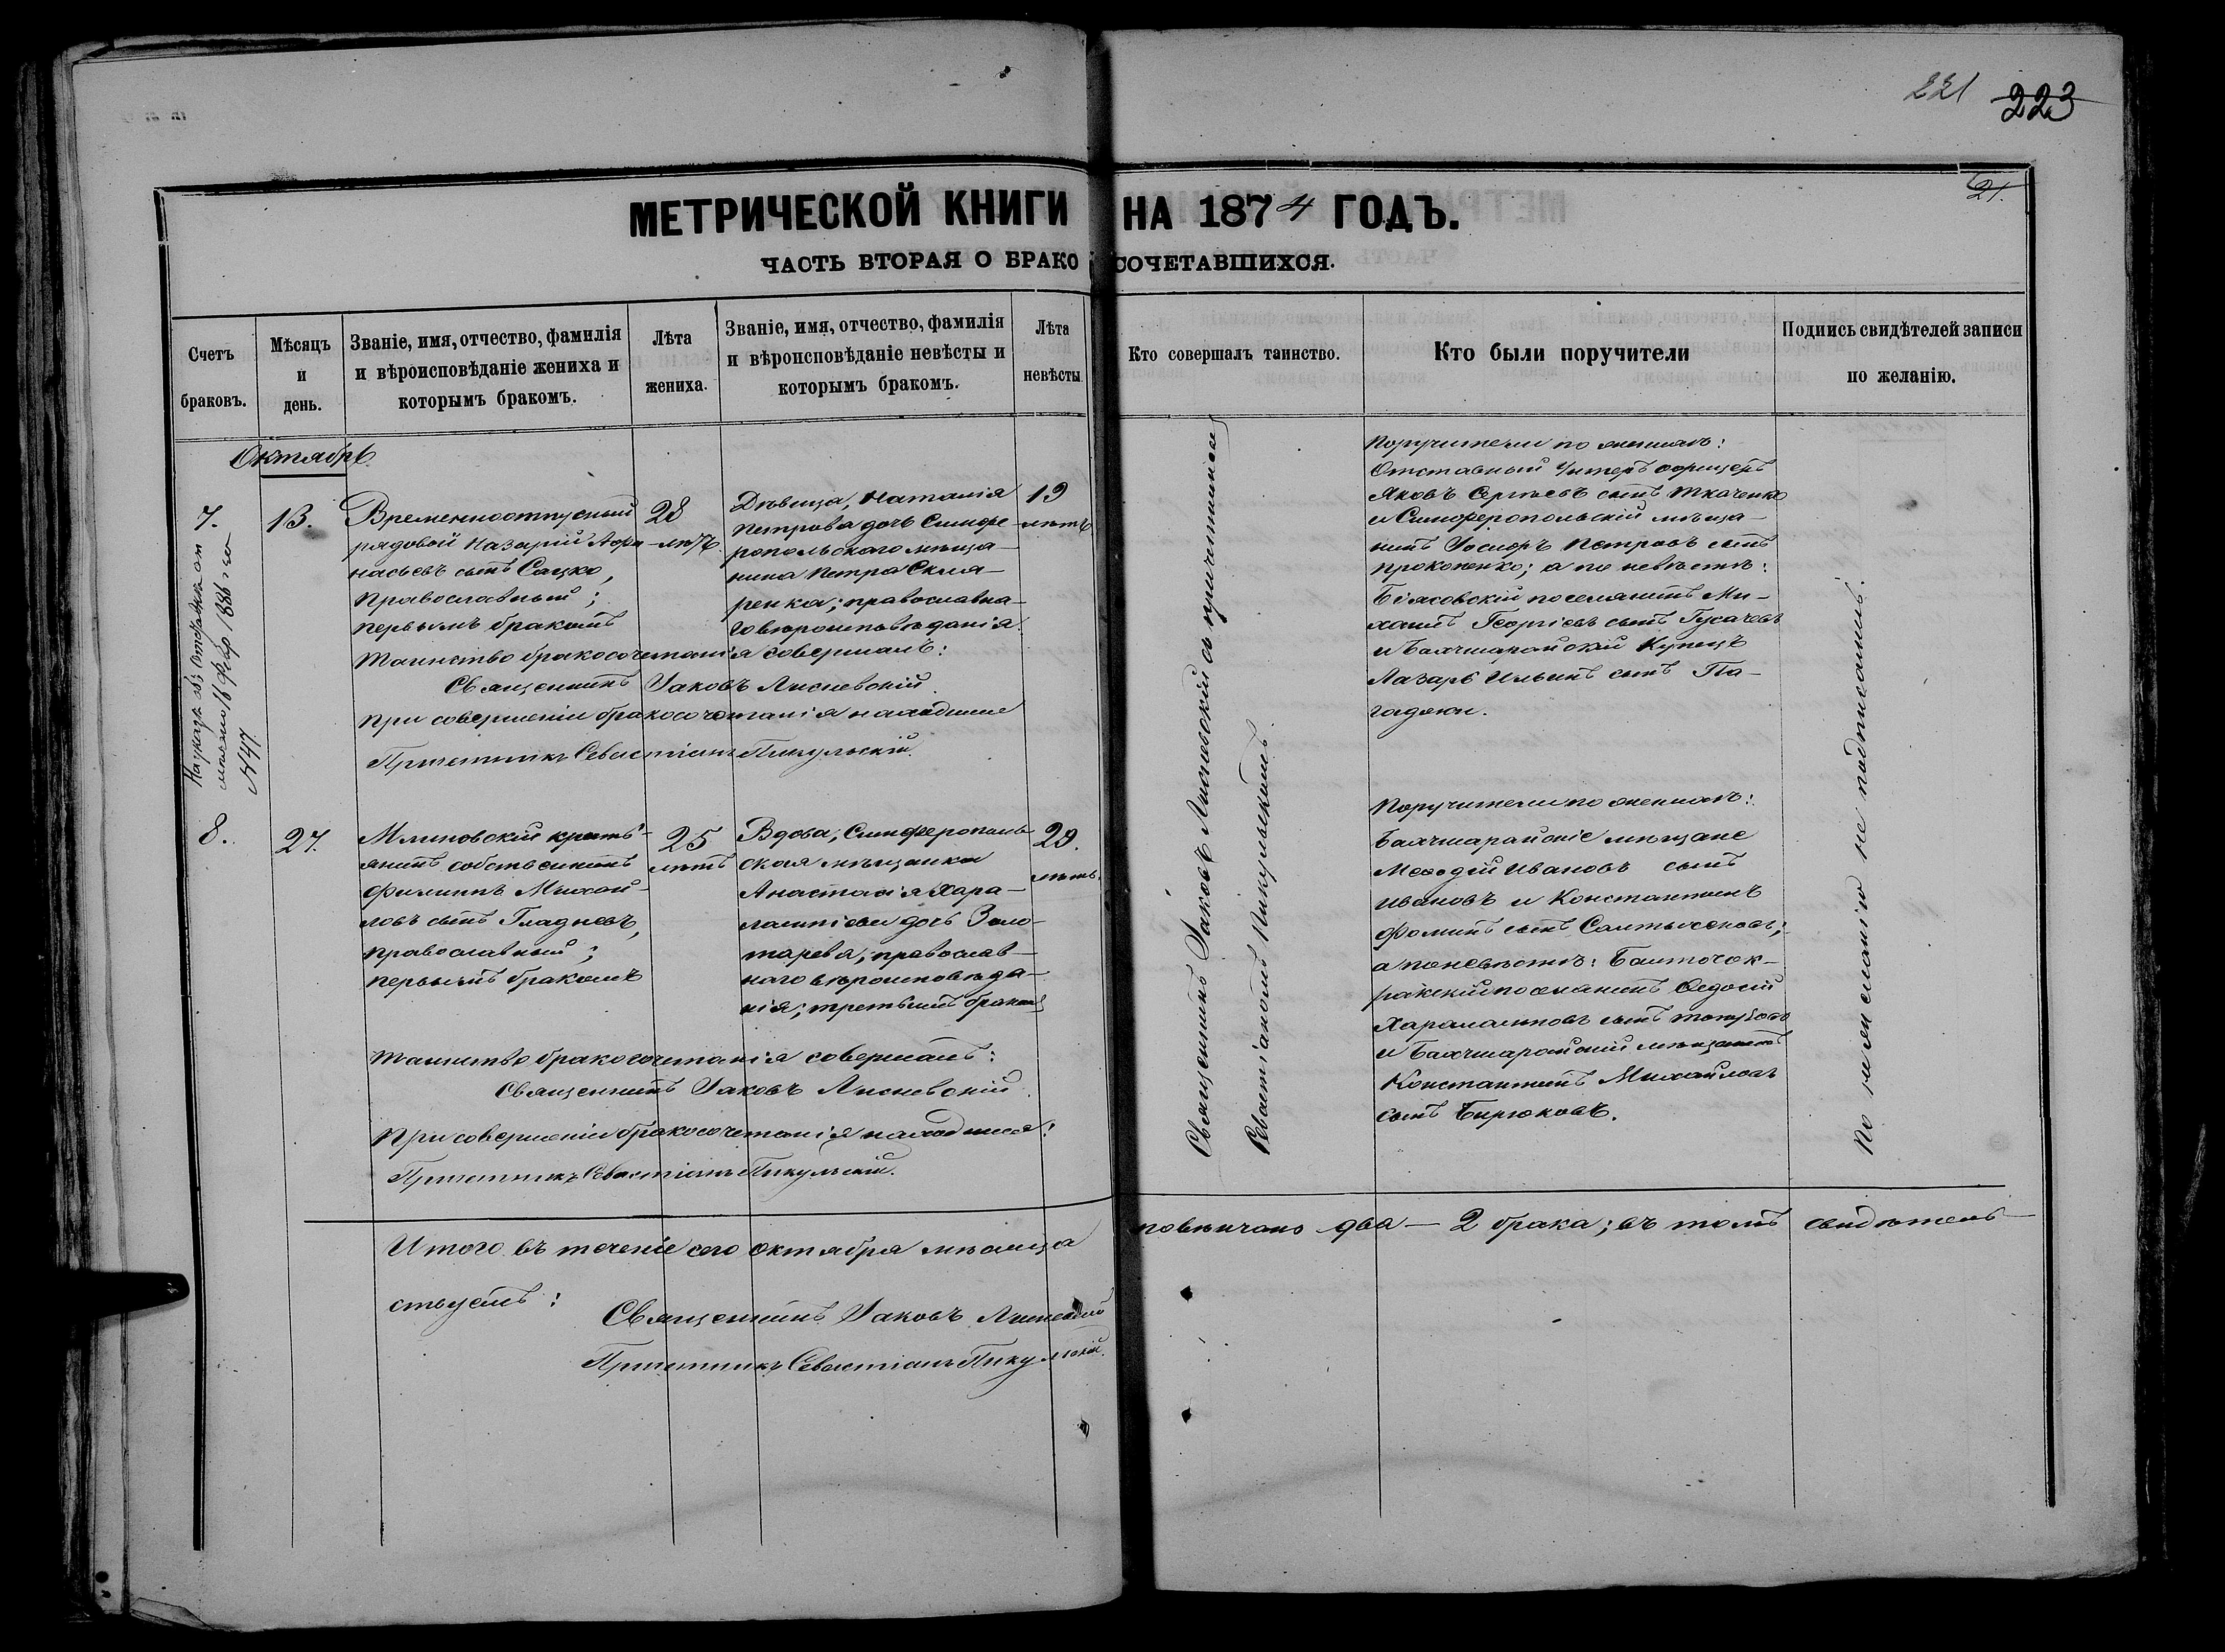 221 223
21.
МЕТРИЧЕСКОЙ КНИГИ НА 1874 ГОДЪ.
ЧАСТЬ ВТОРАЯ О БРАКОСОЧЕТАВШИХСЯ.
Счетъ браковъ.
Мѣсяцъ и день.
Званіе, имя, отчество, фамилія
и вѣроисповѣданіе жениха и
которымъ бракомъ.
Лѣта жениха.
Званіе, имя, отчество, фамилія
и вѣроисповѣданіе невѣсты и
которымъ бракомъ.
Лѣта невѣсты
Кто совершалъ таинство.
Кто были поручители
Подпись свидѣтелей записи
по желанію.
Октябрь
7.
13.
Временноотпускный
рядовой Назарій Афа-
насьевъ сынъ Сацко,
православный;
первымъ бракомъ
28
лѣтъ
Дѣвица, Наталія
Петрова дочь Симфе-
ропольскаго мѣща-
нина Петра Скля-
ренка; православна-
го вѣроисповѣданія.
19
лѣтъ
Таинство бракосочетанія совершалъ:
Священникъ Іаковъ Лисневскій.
При совершеніи бракосочетанія находился
Причетникъ Севастіанъ Пикульскій.
1886 года
№ 47
Поручители по женихѣ:
Отставный Унтеръ офицеръ
Яковъ Сергѣевъ сынъ Ткаченко
и Симферопольскій мѣща-
нинъ Іосифъ Петровъ сынъ
Прокопенко; а по невѣстѣ:
Біясовскій поселянинъ Ми-
хаилъ Георгіевъ сынъ Гусачевъ
и Бахчисарайскій Купецъ
Лазарь Ильинъ сынъ Па-
гадяки.
8.
27.
крестъ-
янинъ собственникъ
Филиппъ Михай-
ловъ сынъ Гладневъ,
православный;
первымъ бракомъ
25
лѣтъ
Вдова, Симферополь-
ская мѣщанка
Анастасія Хара-
лампіева дочь Золо-
тарева; православ-
наго вѣроисповѣда-
нія; третьимъ бракомъ
29.
лѣтъ.
Таинство бракосочетанія совершалъ:
Священникъ Іаковъ Лисневскій.
При совершеніи бракосочетанія находился:
Причетникъ Севастіанъ Пикульскій.
Священникъ Іаковъ Лисневскій съ причетникомъ
Севастіаномъ Пикульскимъ.
Поручители по женихѣ:
Бахчисарайскіе мѣщане
Мефодій Ивановъ сынъ
Ивановъ и Константинъ
Фоминъ сынъ
а по невѣстѣ:
поселянинъ Ѳедосій
Хараламповъ сынъ
и Бахчисарайскій мѣщанинъ
Константинъ Михайловъ
сынъ Бирюковъ.
По нежеланію не подписались.
Итого въ теченіе сего октября мѣсяца повѣнчано два — 2 брака; въ томъ свидѣтель-
ствуемъ:
Священникъ Іаковъ Лисневскій
Причетникъ Севастіанъ Пикульскій.